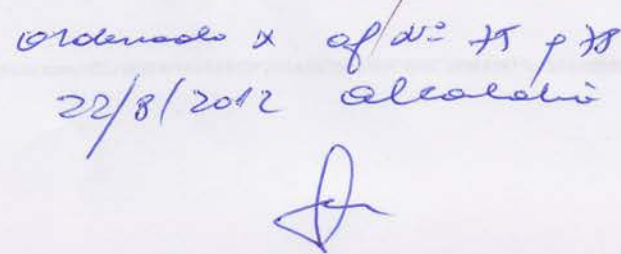 ordenado x of/Nº 75 y 78
22/8/2012 Alcaldía